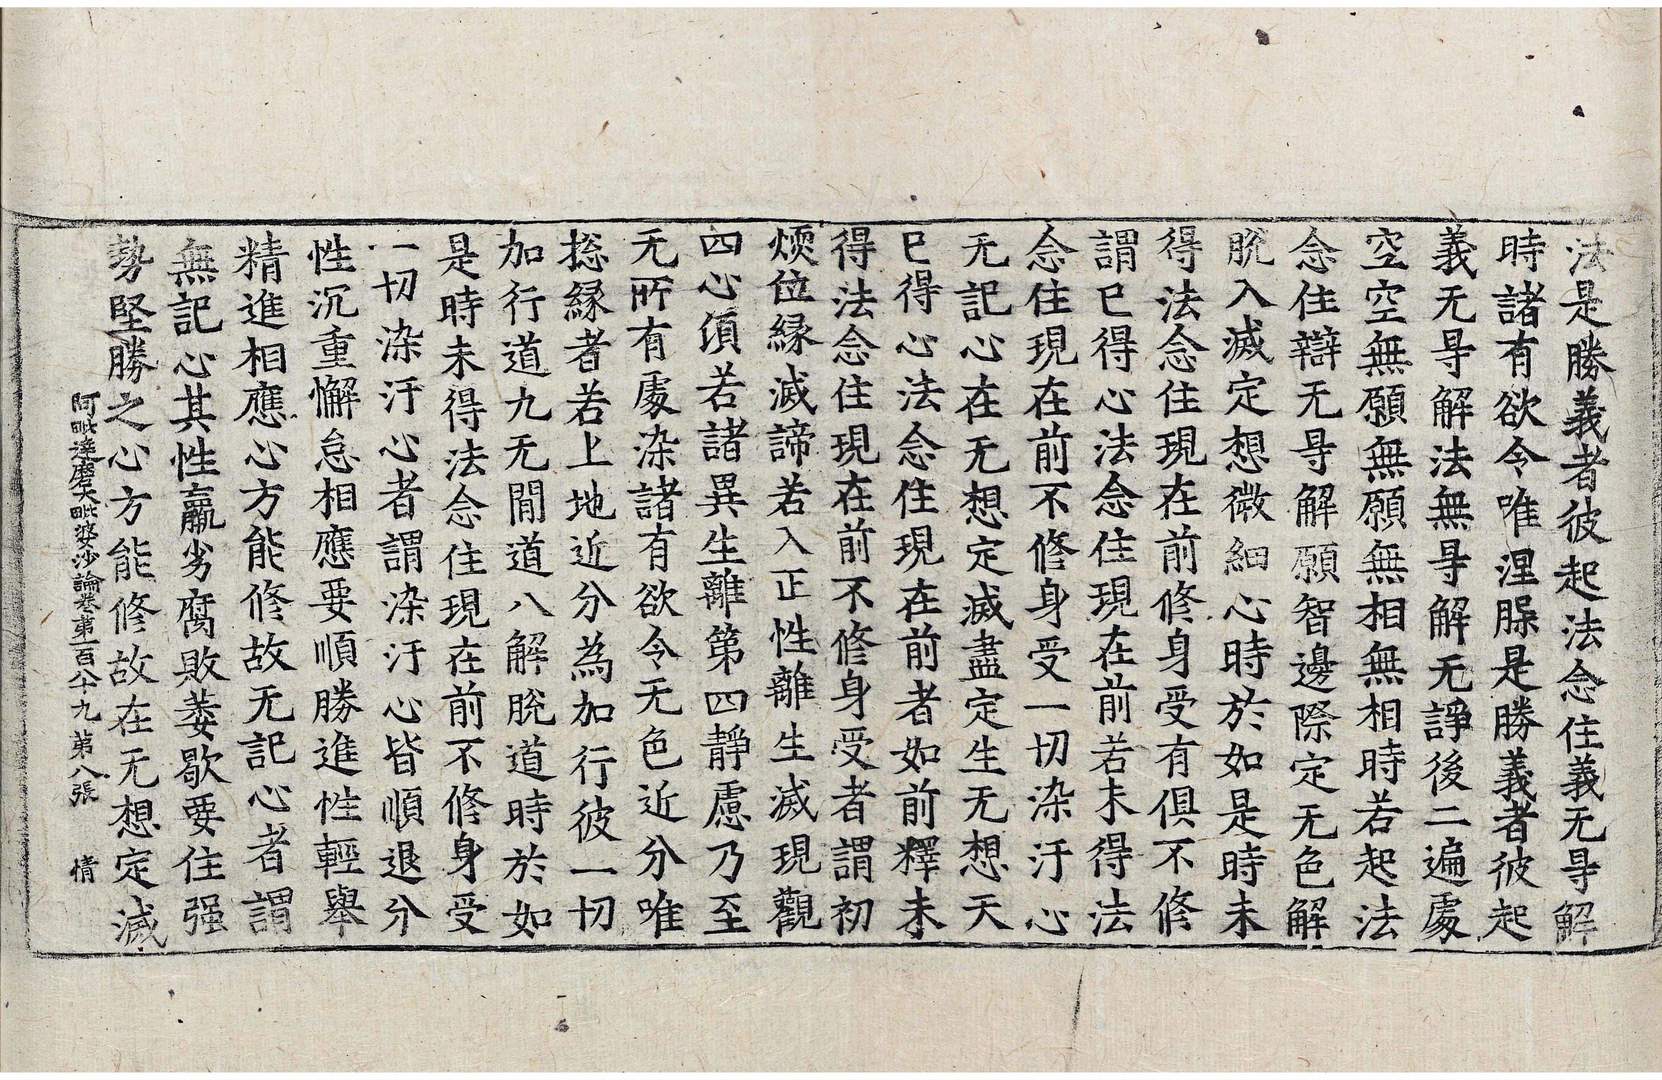 法是勝義者彼起法念住義无㝵解
時諸有欲令唯涅槃是勝義者彼起
義无㝵解法無㝵解无諍後二遍處
空空無願無願無相無相時若起法
念住辯无㝵解願智邊際定无色解
脫入滅定想微細心時於如是時未
得法念住現在前修身受有俱不修
謂已得心法念住現在前若未得法
念住現在前不修身受一切染汙心
无記心在无想定滅盡定生无想天
已得心法念住現在前者如前釋未
得法念住現在前不修身受者謂初
煗位緣滅諦若入正性離生滅現觀
四心頃若諸異生離第四靜慮乃至
无所有處染諸有欲令无色近分唯
捴緣者若上地近分為加行彼一切
加行道九无閒道八解脫道時於如
是時未得法念住現在前不修身受
一切染汙心者謂染汙心皆順退分
性沉重懈怠相應要順勝進性輕舉
精進相應心方能修故无記心者謂
無記心其性羸劣腐敗萎歇要住强
勢堅勝之心方能修故在无想定滅
阿毗達磨大毗婆沙論卷第一百八十九 第八張 情